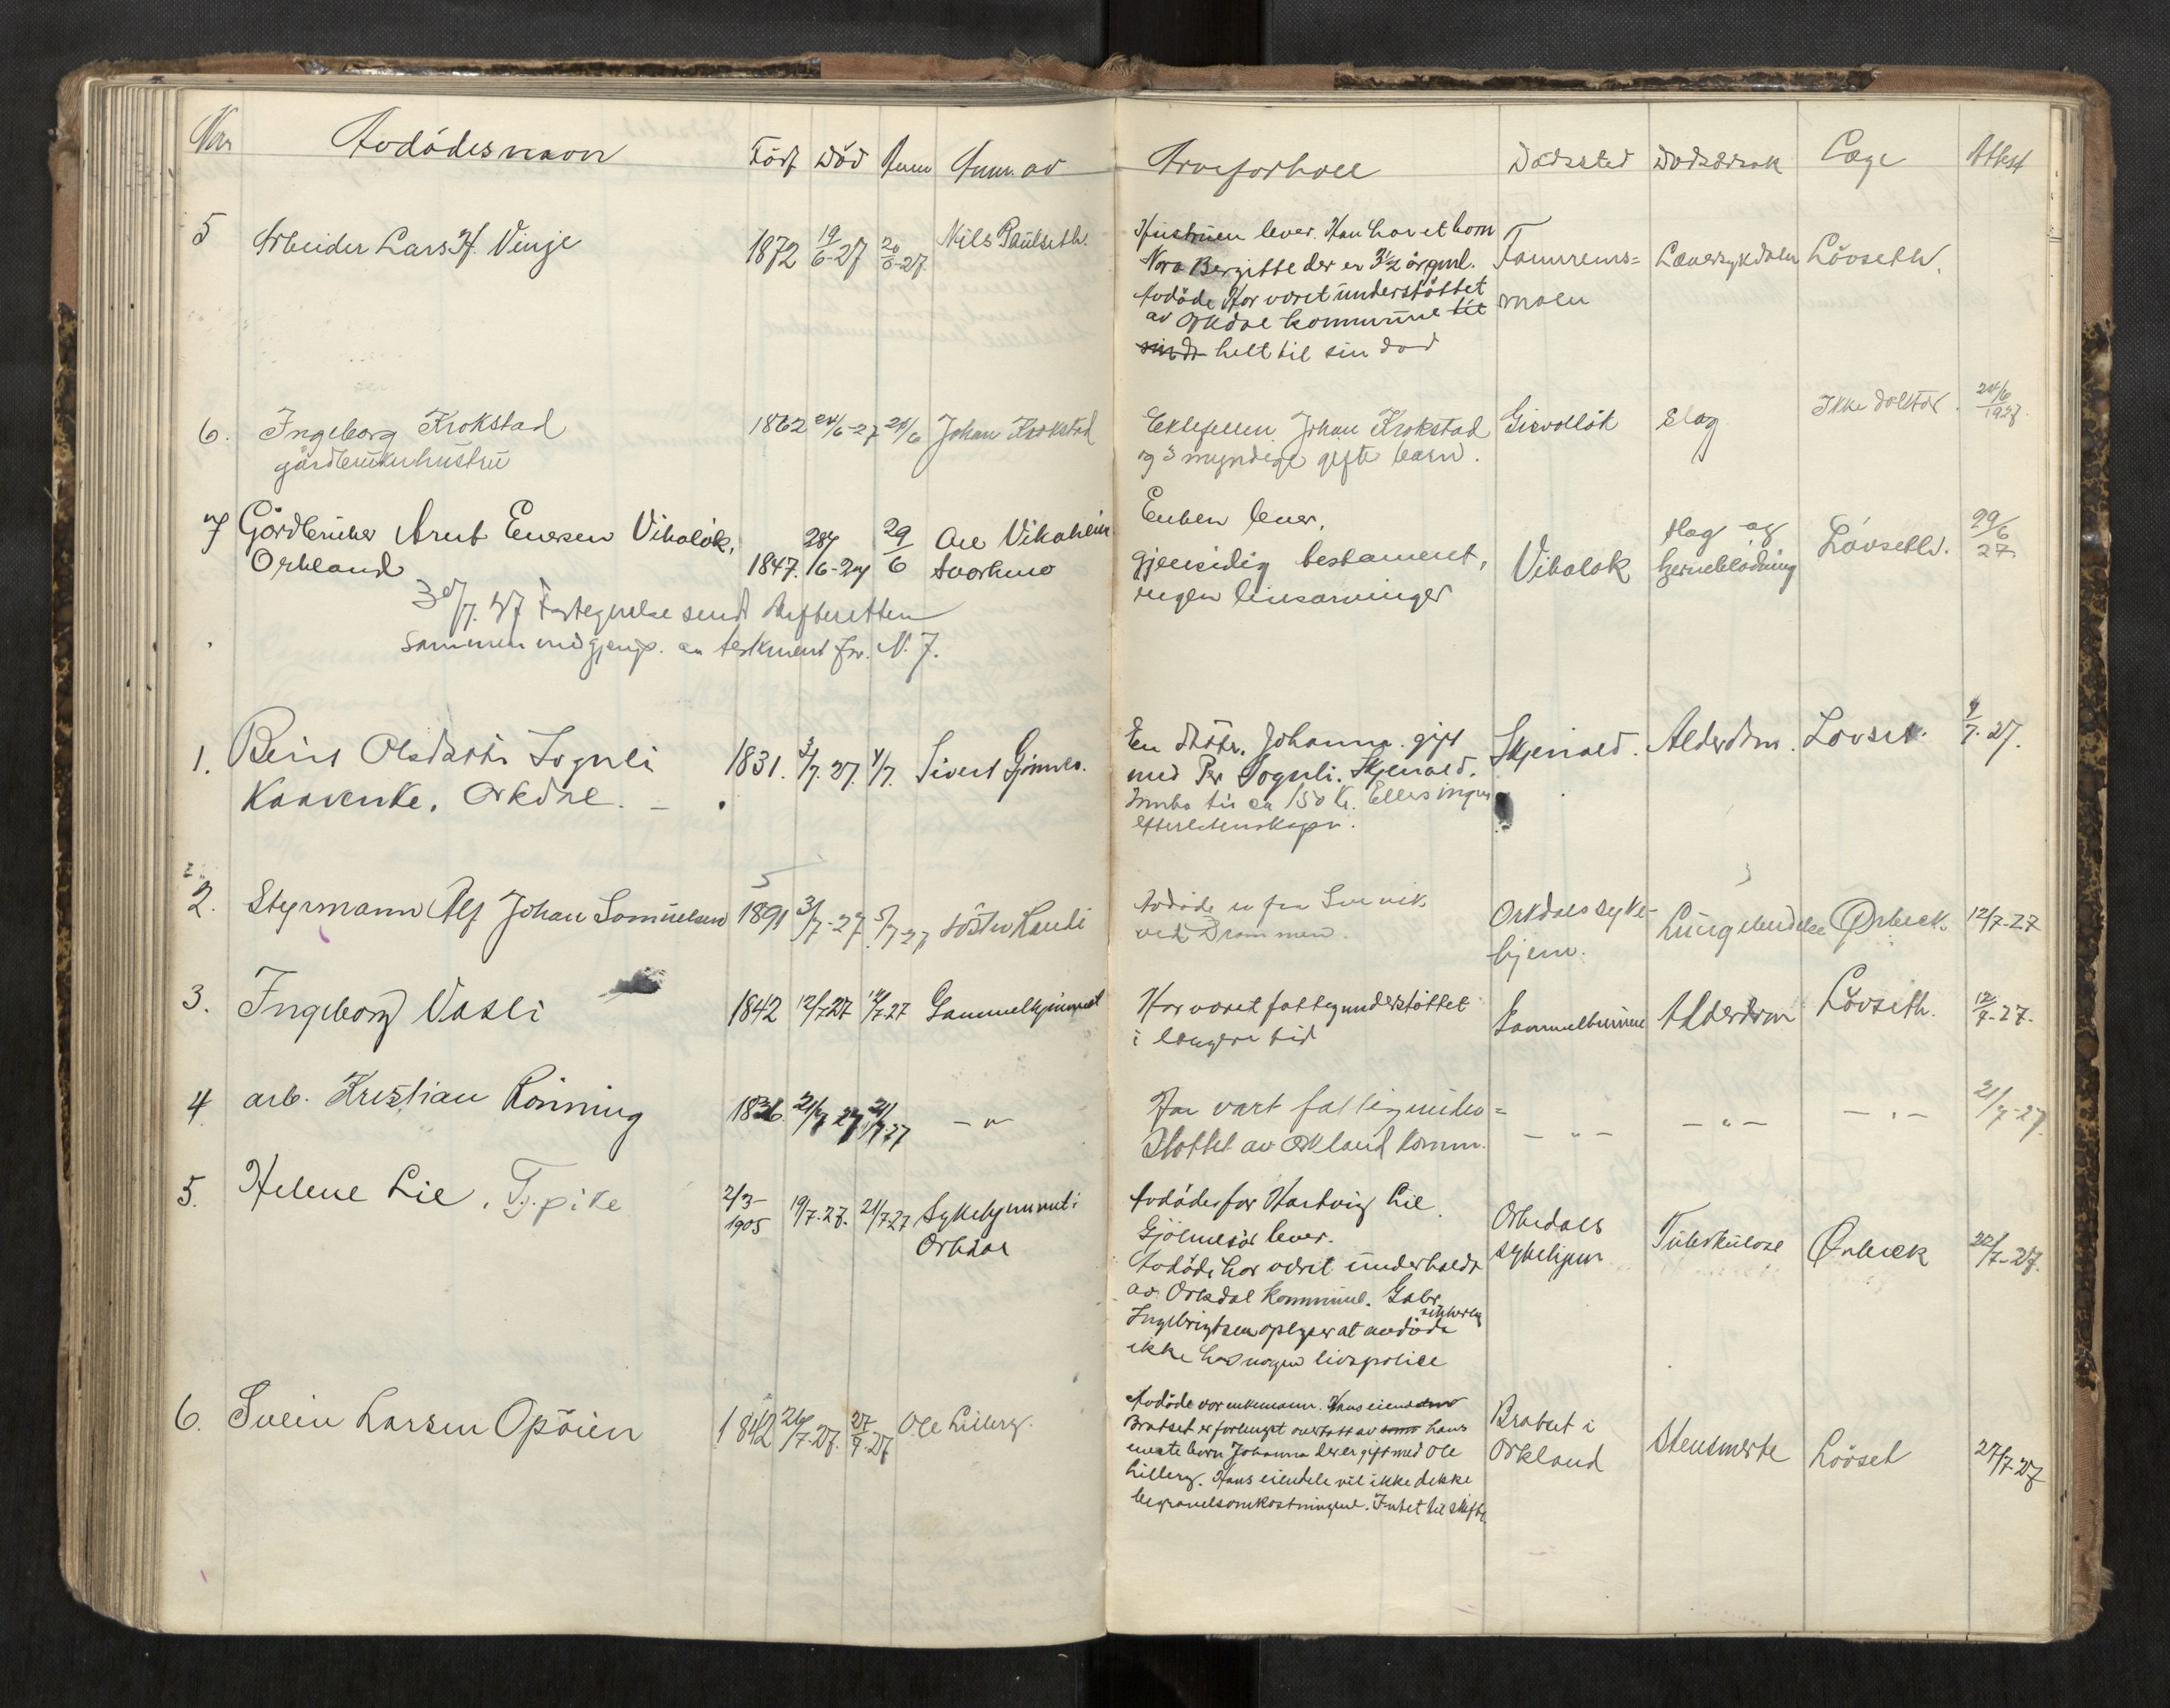 Nr Avdödes navn Födt Död Anm Anm. av Arveforhold Dödssted Dödsårsak Læge Attest
5 Arbeider Lars H. Vinje 1872 19/6-27 20/6-27 Nils Paulseth.
Hustruen lever. Han har et barn
Nora Bergitte der er 3½ år gml.
Avdöde Har været understöttet
av Orkdal kommune til
helt til sin död
Lövseth.
moen
6. Ingeborg Krokstad 1862 24/6-27 24/6 Johan Krokstad
gårdbrukerhustru
Ektefellen Johan Krokstad
og 3 myndige gifte barn.
Slag Ikke doktor. 24/6 1927.
7 Gårdbruker Arnt Enersen Vikalök,
Orkland 1847. 28/6-27 29/6
Enken lever.
gjensidig testament,
ingen livsarvinger
Vikalök Slag og
hjerneblödning Lövseth. 29/6 27.
30/7. 27 Fortegnelse sendt skifteretten
sammen med gjenp. av testament fra N. J.
1. Berit Olsdatter Sognli 1831. 3/7. 27. 4/7. Sivert Gjömle.
Kaarenke, Orkdal.
En datter. Johanna. gift
med Per Sognli. Skjenald.
Innbo til ca 150 Kr. Ellers ingen
efterladenskaper.
Skjenald. Alderdom. Lövset. 4/7. 27.
2. Styrmann Alf Johan Samuelsen 1891 3/7-27 5/7-27 söster Randi
Avdöde er fra Svelvik
ved Drammen.
Orkdals syke-
hjem. Lungebetendelse Ørbeck. 12/7-27
3. Ingeborg Vasli 1842 12/7 27 12/7-27 Gammelhjemmet
Har været fattigunderstöttet
i lengere tid
Alderdom Lövseth. 12/7-27.
4 arb. Kristian Rönning 1836. 21/7 27 21/7-27 – " –
Har vært fattigunder=
stöttet av Orkland komm.
– " – – " – – " – 21/7-27.
5. Helene Lie, Tj. pike 2/3-1905 19/7-27. 21/7-27 Sykehjemmet i
Orkdal
Avdödes far Hartvig Lie
lever.
Avdöde har været underholdt
av Orkdal Kommune. Gabr.
Ingebrigtsen oplyser at avdöde sikkerlig
ikke har nogen livspolise
Orkdals
sykehjem Tuberkulose Ørbeck 22/7-27.
6. Svein Larsen Opöien 1842 26/7-27. 27/7-27 Ole Lillery.
Avdöde var enkemann. Hans eiendom
Bratset er forlengst overtatt av som hans
eneste barn Johanna der er gift med Ole
Lillery. Hans eiendele vil ikke dekke
begravelsomkostningene. Intet til skifte.
Bratset i
Orkland Stensmerte Lövset 27/7-27